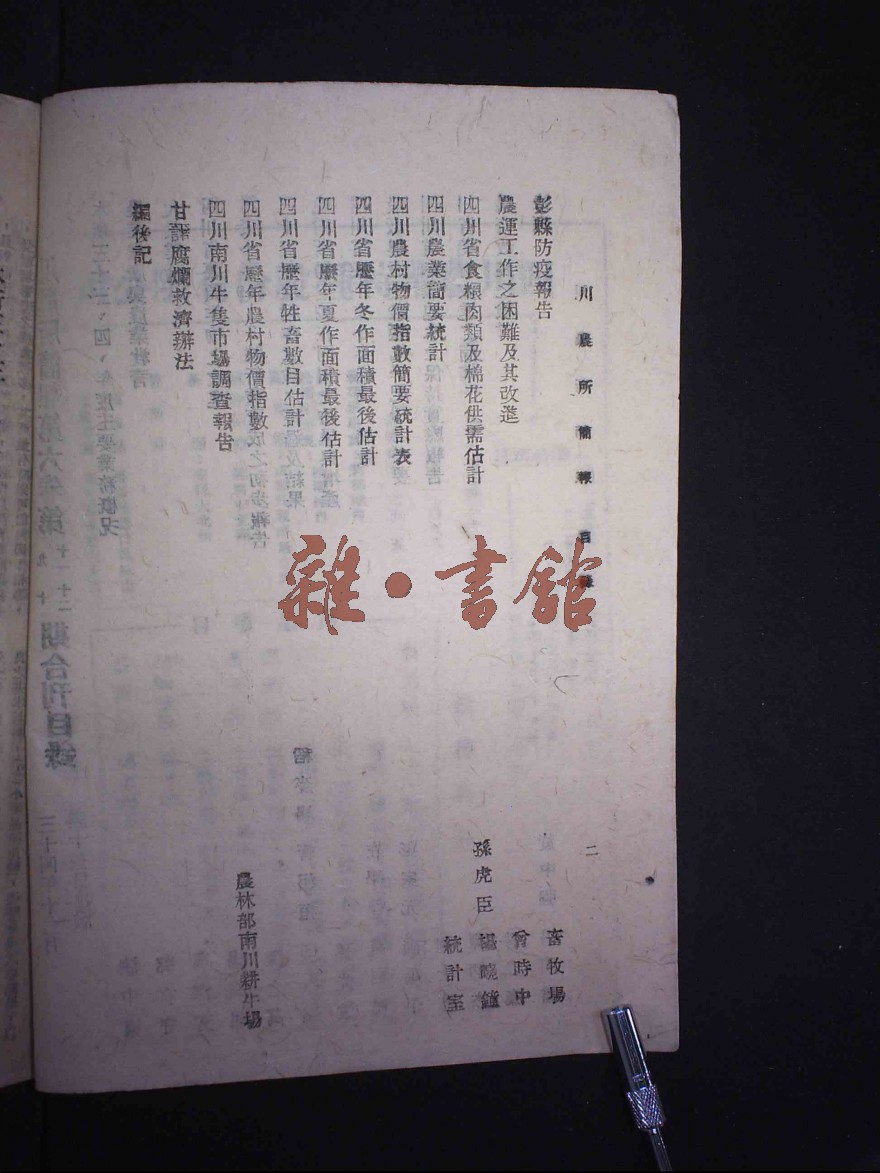 川農所簡報目錄
二
彭縣防疫報告
畜牧場
農運工作之困難及其改進
曾時中
四川省食糧肉類及棉花供需估計
孫虎臣 楊曉鐘
四川農業簡要統計
統計室
四川農村物價指數簡要統計表
四川省歷年冬作面積最後估計
四川省歷年夏作面積最後估計
四川省歷年牲畜數目估計
四川省歷年農村物價指數
四川南川牛隻市場調查報告
農林部南川耕牛場
甘藷腐爛救濟辦法
編後記
雜·書館